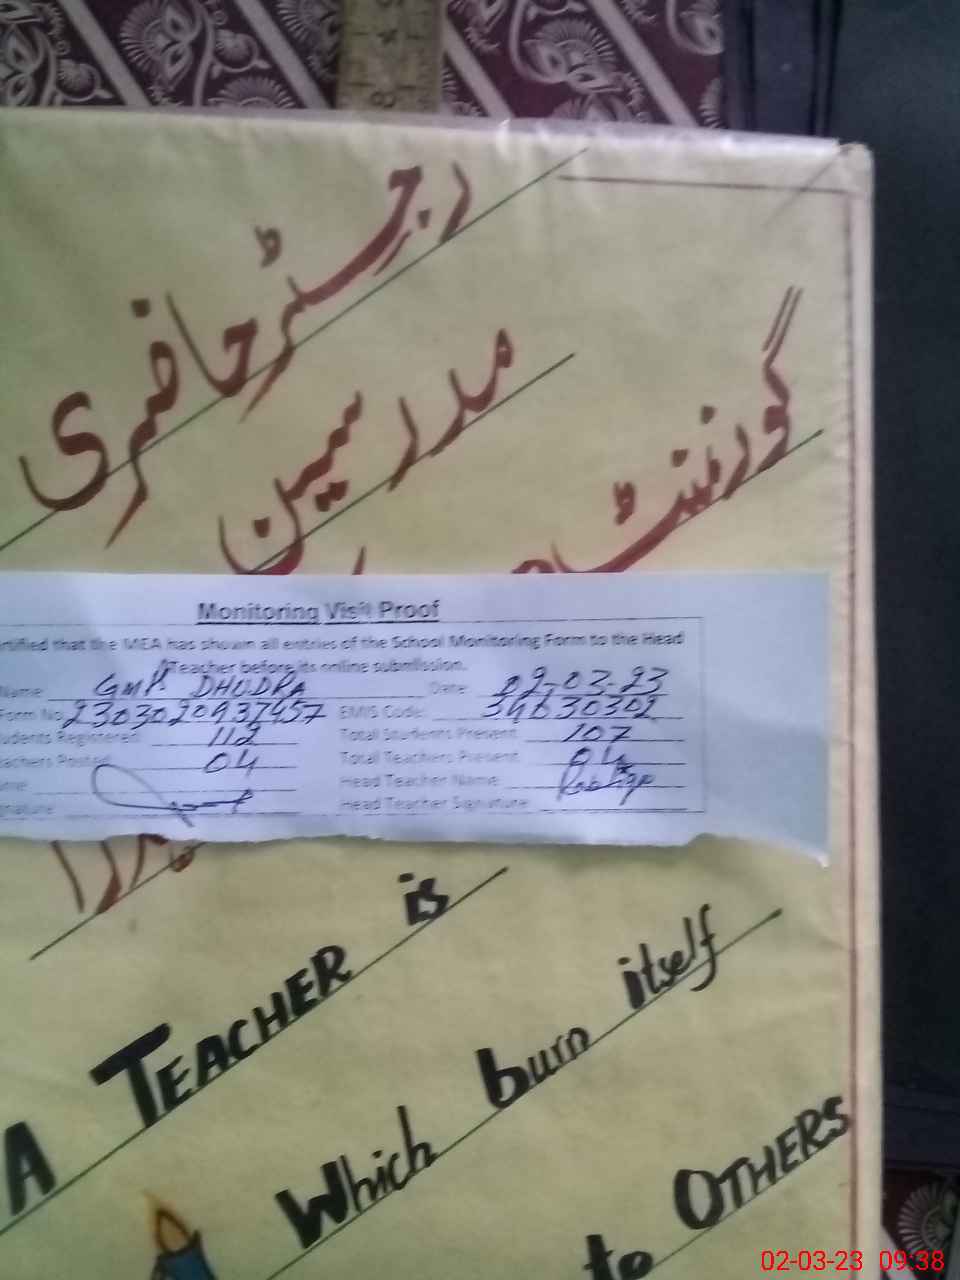 رجسٹر حاضری
مدرسین
گورنمنٹ
Monitoring Visit Proof
rtified that the MEA has shown all entries of the School Monitoring Form to the Head
Teacher before its online submission.
Name GMPS DHUDRA Date: 02-03-23
Form No 2303020937457 EMIS Code: 34630302
udents Registered: 112 Total Students Present: 107
achers Posted: 04 Total Teachers Present: 04
me: Head Teacher Name:
gnature: Head Teacher Signature:
A TEACHER is
Which burn itself
to OTHERS
02-03-23 09:38